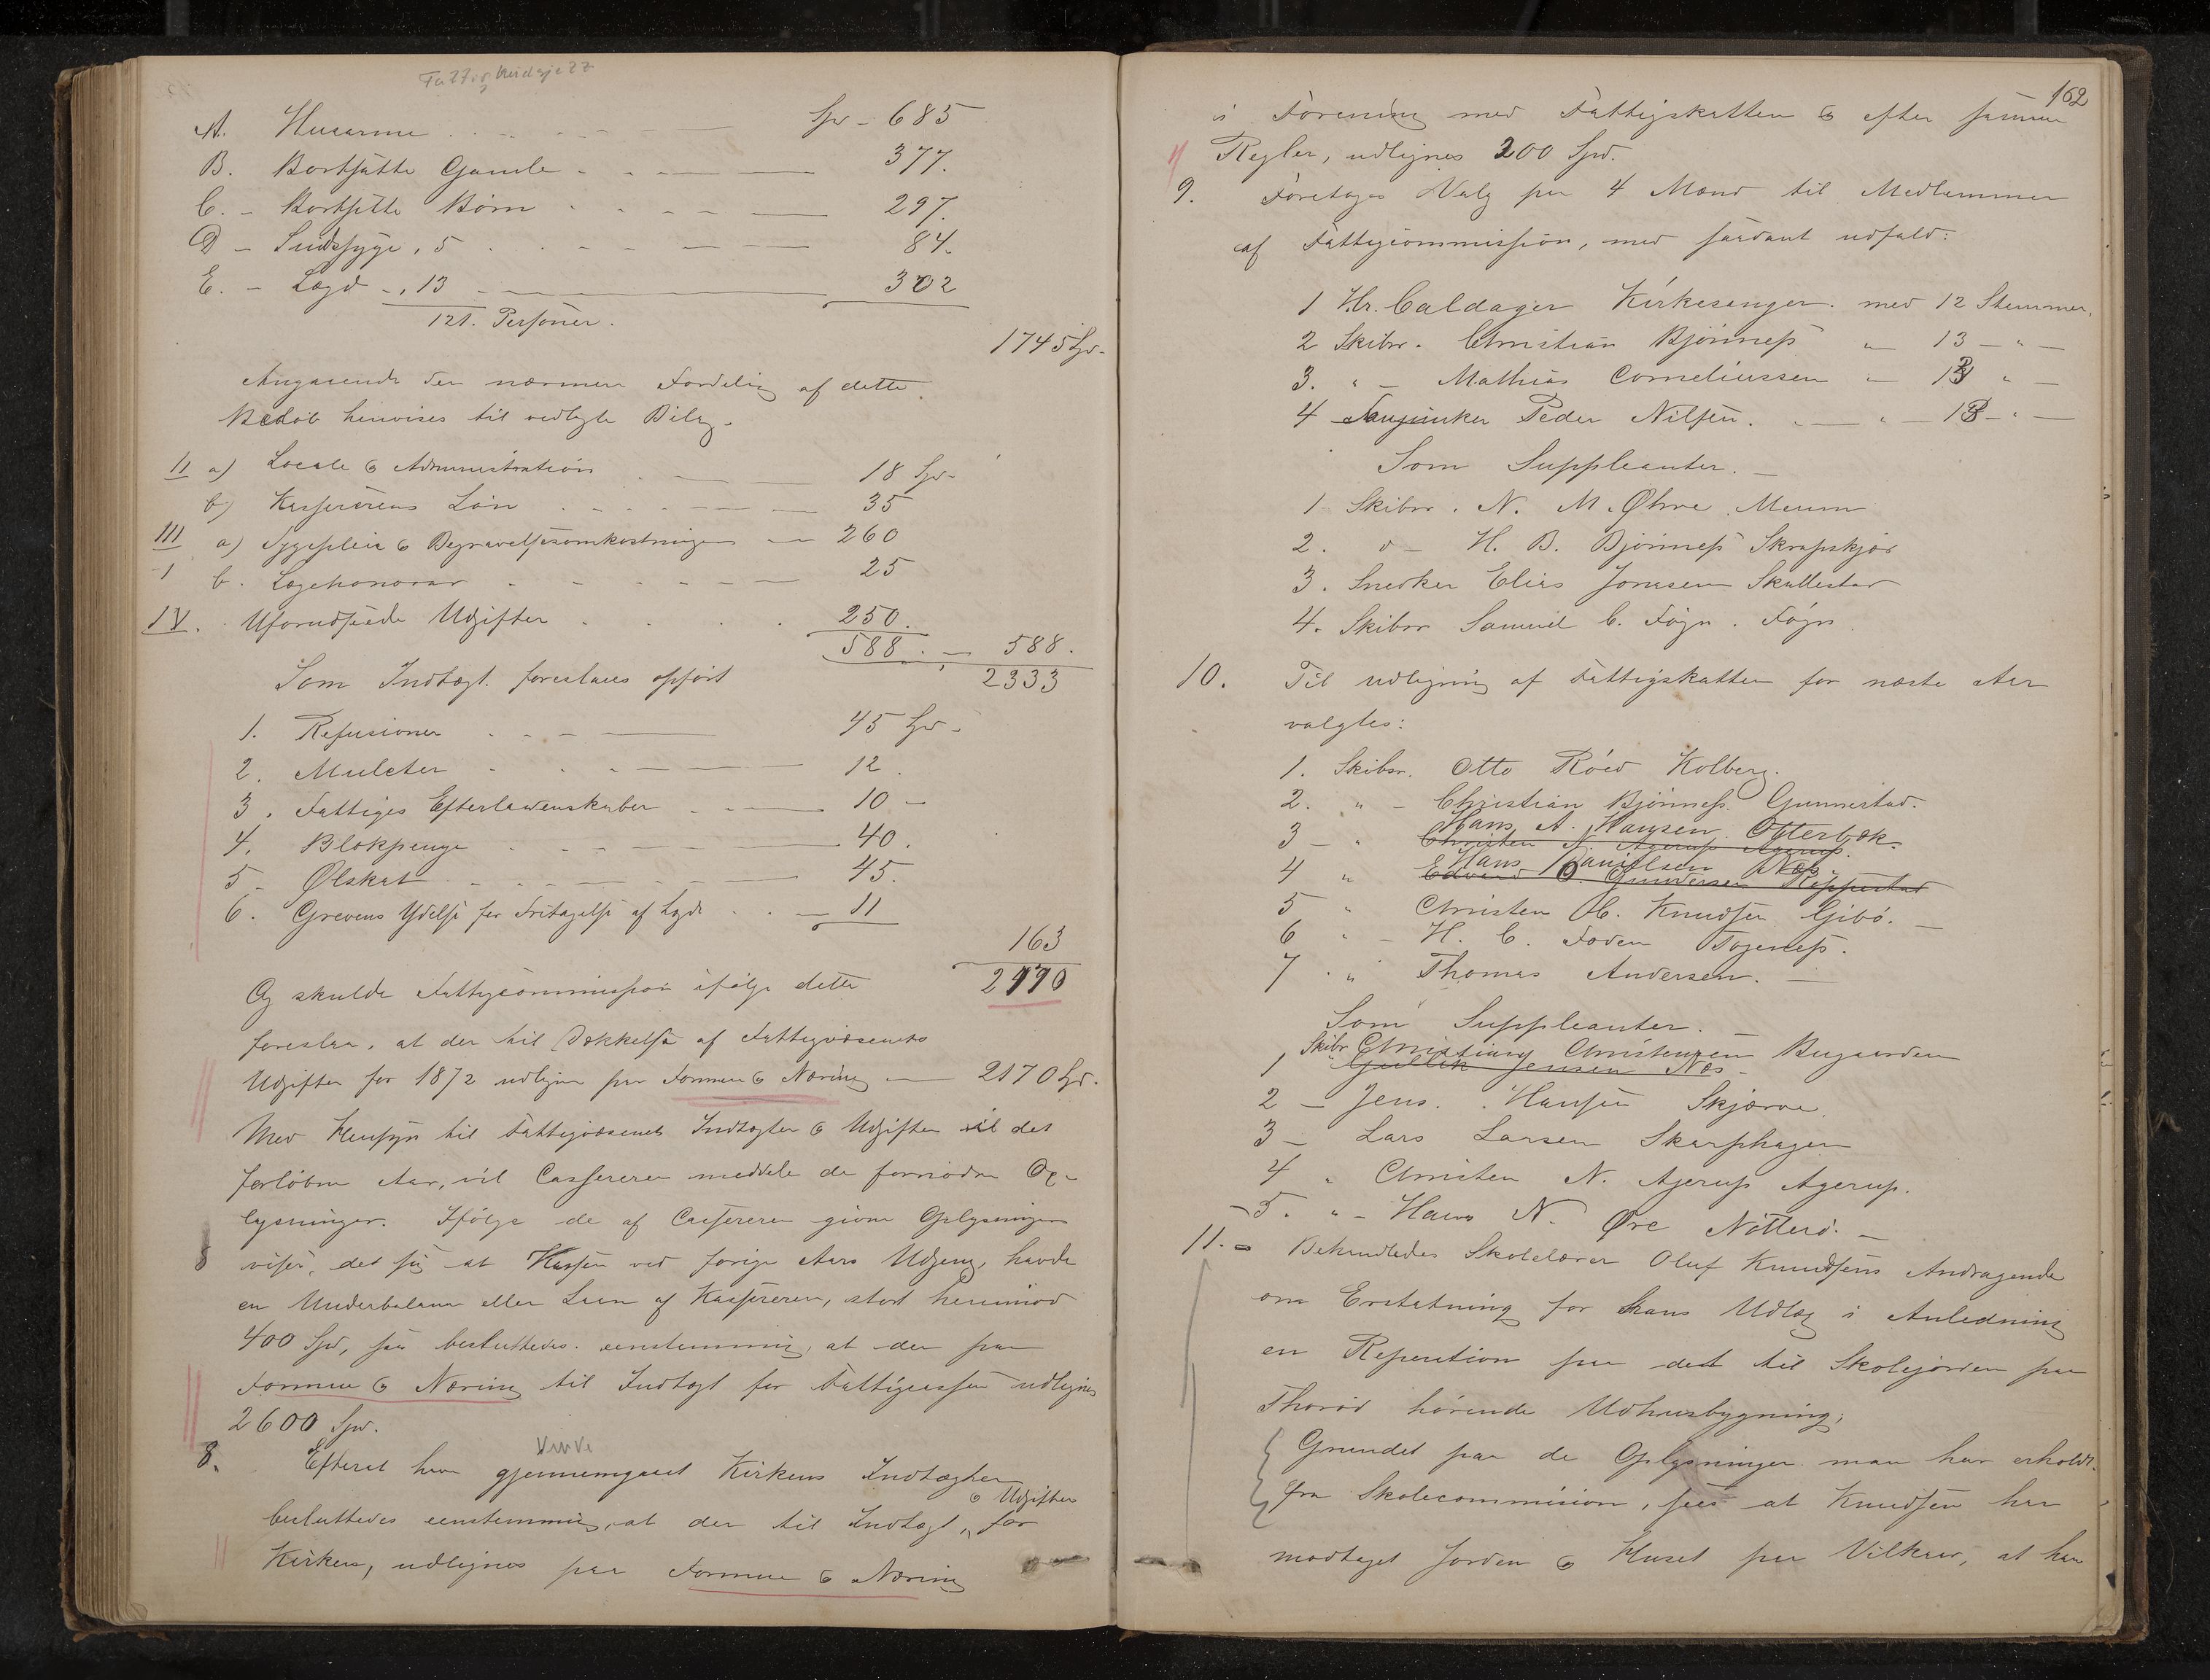 A. Husarme Spd - 685
B. Bortsatte Gamle 377.
C. - Bortsatte Børn 297.
D - Sindssyge, 5 84.
E. - Lægd -, 13 302
121. Personer.
1745 Spd-
Angaaende den nærmere Fordeling af dette
Beløb henvises til vedlagte Bilag.
II a) Locale & Administration 18 Spd-
b) Kassererens Løn 35
III a) Sygepleie & Begravelsesomkostninger 260
b. Lægehonorar 25
IV. Uforudseede Udgifter 250.
588. - 588.
Som Indtægt foreslaaes opført 2333
1. Refusioner 45 Spd-
2. Mulcter 12.
3. Fattiges Efterladenskaber 10 -
4. Blokpenge 40.
5 - Ølskat 45.
6. Grevens Ydelse for Fritagelse af Lægd 11
163
Og skulde Fattigcommission ifølge dette 2170
foreslaa, at der til Dækkelse af Fattigvæsenets
Udgifter for 1872 udlignes paa Formue & Næring - 2170 Spd.
Med Hensyn til Fattigvæsenets Indtægter & Udgifter i det
forløbne Aar, vil Cassereren meddele de fornødne Op-
lysninger. Ifølge de af Cassereren givne Oplysninger
viser det sig at Kassen ved forige Aars Udgang, havde
en Underbalance eller Laan af Kassereren, stort henimod
400 Spd, saa besluttedes eenstemmig, at der paa
Formue & Næring til Indtægt for Fattigcassen udlignes
2600 Spd.
8. Efterat have gjennemgaaet Kirkens Indtægter
& Udgifter
besluttedes eenstemmig, at der til Indtægt for
Kirken, udlignes paa Formue & Næring
162
i Forening med Fattigskatten & efter samme
Regler, udlignes 200 Spd.
9. Foretages Valg paa 4 Mænd til Medlemmer
af Fattigcommission, med saadant udfald:
1 Hr. Caldager Kirkesanger. med 12 Stemmer,
2 Skibsr. Christian Bjønness " 13 - " -
3. " - Mathias Corneliussen " 13 " -
4 Peder Nilsen. " - 13 - " -
Som Suppleanter. -
1 Skibsr. N. M. Øhre Meum
2. " - H. B. Bjønness
3. Snedker Elias Jonasen Skallestad
4. Skibsr Samuel C. Føyn. Føyn.
10. Til udligning af Fattigskatten for næste Aar
valgtes:
1. Skibsr. Otto Røed Kolberg.
2. " - Christian Bjønness Gunnestad.
Hans A. Hansen Otterbæk.
3 - " Christen N. Agerup Agerup.
Hans Danielsen Næs.
4 " Edvard O. Gundersen Reppestad
5 " Christen C. Knudsen Gibø. -
6 " - H. C. Foden
7 . " Thomas Andersen. -
Som Suppleanter. -
Skibr Christian Christensen Bugaarden
1 " Gullik Jensen Næs -
2 - Jens. Hansen Skjærve.
3 - Lars Larsen Skarphagen
4 " Christen N. Agerup Agerup.
5. " - Hans N. Øre Nøtterø. -
11. - Behandledes Skolelærer Oluf Knudsens Andragende
om Erstatning for hans Udlæg i Anledning
en Reperation paa det til Skolejorden paa
Thorød hørende Udhusbygning;
Grundet paa de Oplysninger man har erholdt
fra Skolecommision, sees at Knudsen har
modtaget Jorden & Huset paa Vilkaar, at han